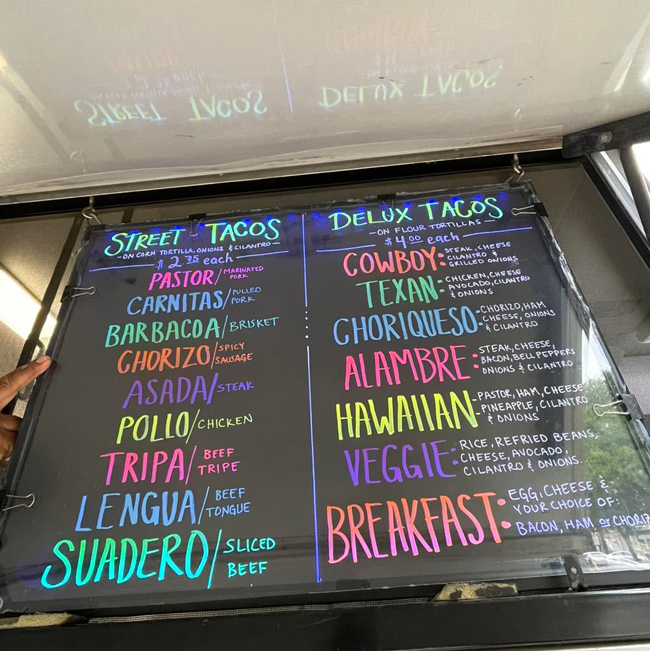 STREET TACOS
-ON CORN TORTILLA, ONIONS & CILANTRO-
$ 2.75 each
PASTOR/MARINATED PORK
CARNITAS/PULLED PORK
BARBACOA/BRISKET
CHORIZO/SPICY SAUSAGE
ASADA/STEAK
POLLO/CHICKEN
TRIPA/BEEF TRIPE
LENGUA/BEEF TONGUE
SUADERO/SLICED BEEF
DELUX TACOS
-ON FLOUR TORTILLAS-
$ 4.00 each
COWBOY: STEAK, CHEESE
CILANTRO &
GRILLED ONIONS
TEXAN: CHICKEN, CHEESE
AVOCADO, CILANTRO
& ONIONS
CHORIQUESO-CHORIZO, HAM
CHEESE, ONIONS
& CILANTRO
ALAMBRE: STEAK, CHEESE,
BACON, BELL PEPPERS
ONIONS & CILANTRO
HAWAIIAN-PASTOR, HAM, CHEESE
PINEAPPLE, CILANTRO
& ONIONS
VEGGIE: RICE, REFRIED BEANS,
CHEESE, AVOCADO,
CILANTRO & ONIONS.
BREAKFAST: EGG, CHEESE &
YOUR CHOICE OF:
BACON, HAM OR CHORIZ